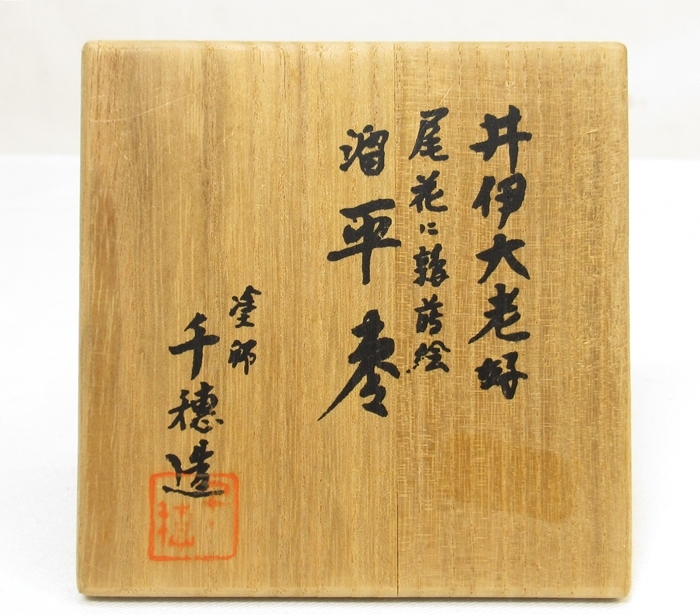 井伊大老好
尾花に鶉蒔絵
溜
平棗
塗師
千穂造
千穂